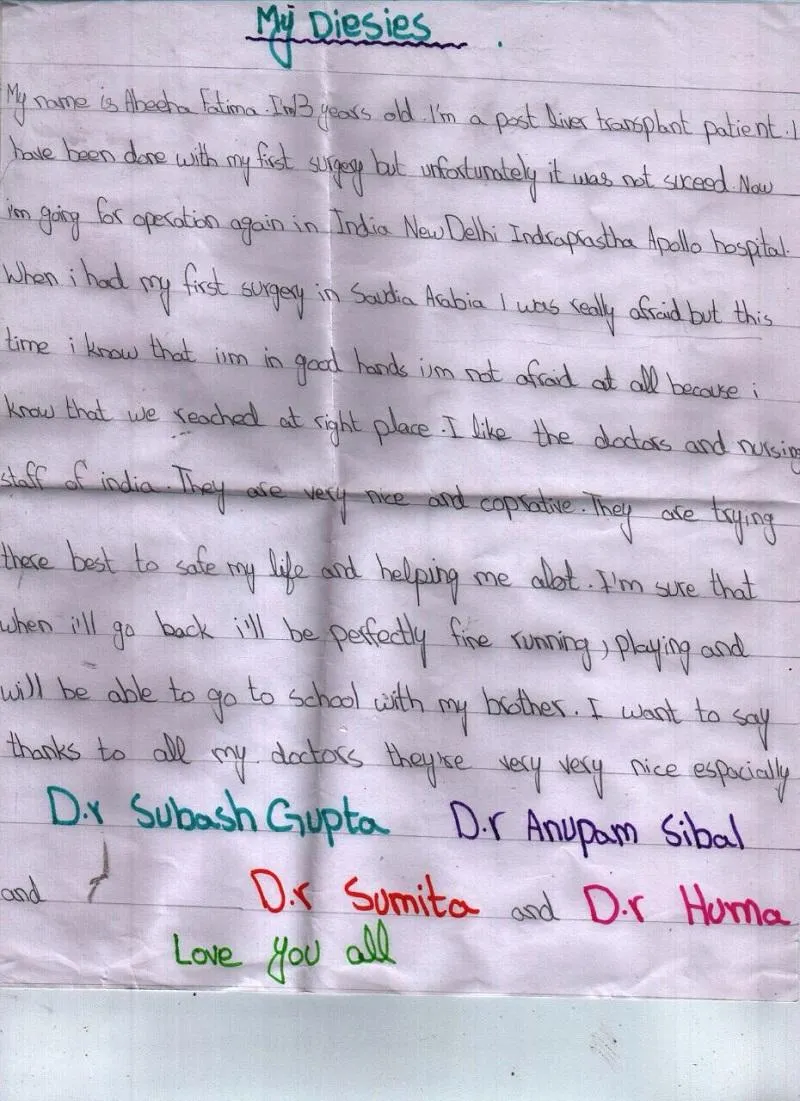 My Diesies
My name is Abeeha Fatima. I'm 13 years old. I'm a post liver transplant patient. I
have been done with my first surgey but unfortunately it was not suceed. Now
i'm going for operation again in India New Delhi Indraprastha Apollo hospital.
When i had my first surgery in Saudia Arabia I was really afraid but this
time i know that i'm in good hands i'm not afraid at all because i
know that we reached at right place. I like the doctors and nursing
staff of india. They are very nice and coprative. They are trying
there best to safe my life and helping me alot. I'm sure that
when i'll go back i'll be perfectly fine running, playing and
will be able to go to school with my brother. I want to say
thanks to all my doctors they're very very nice espacially
D.r Subash Gupta D.r Anupam Sibal
and D.r Sumita and D.r Huma
Love you all